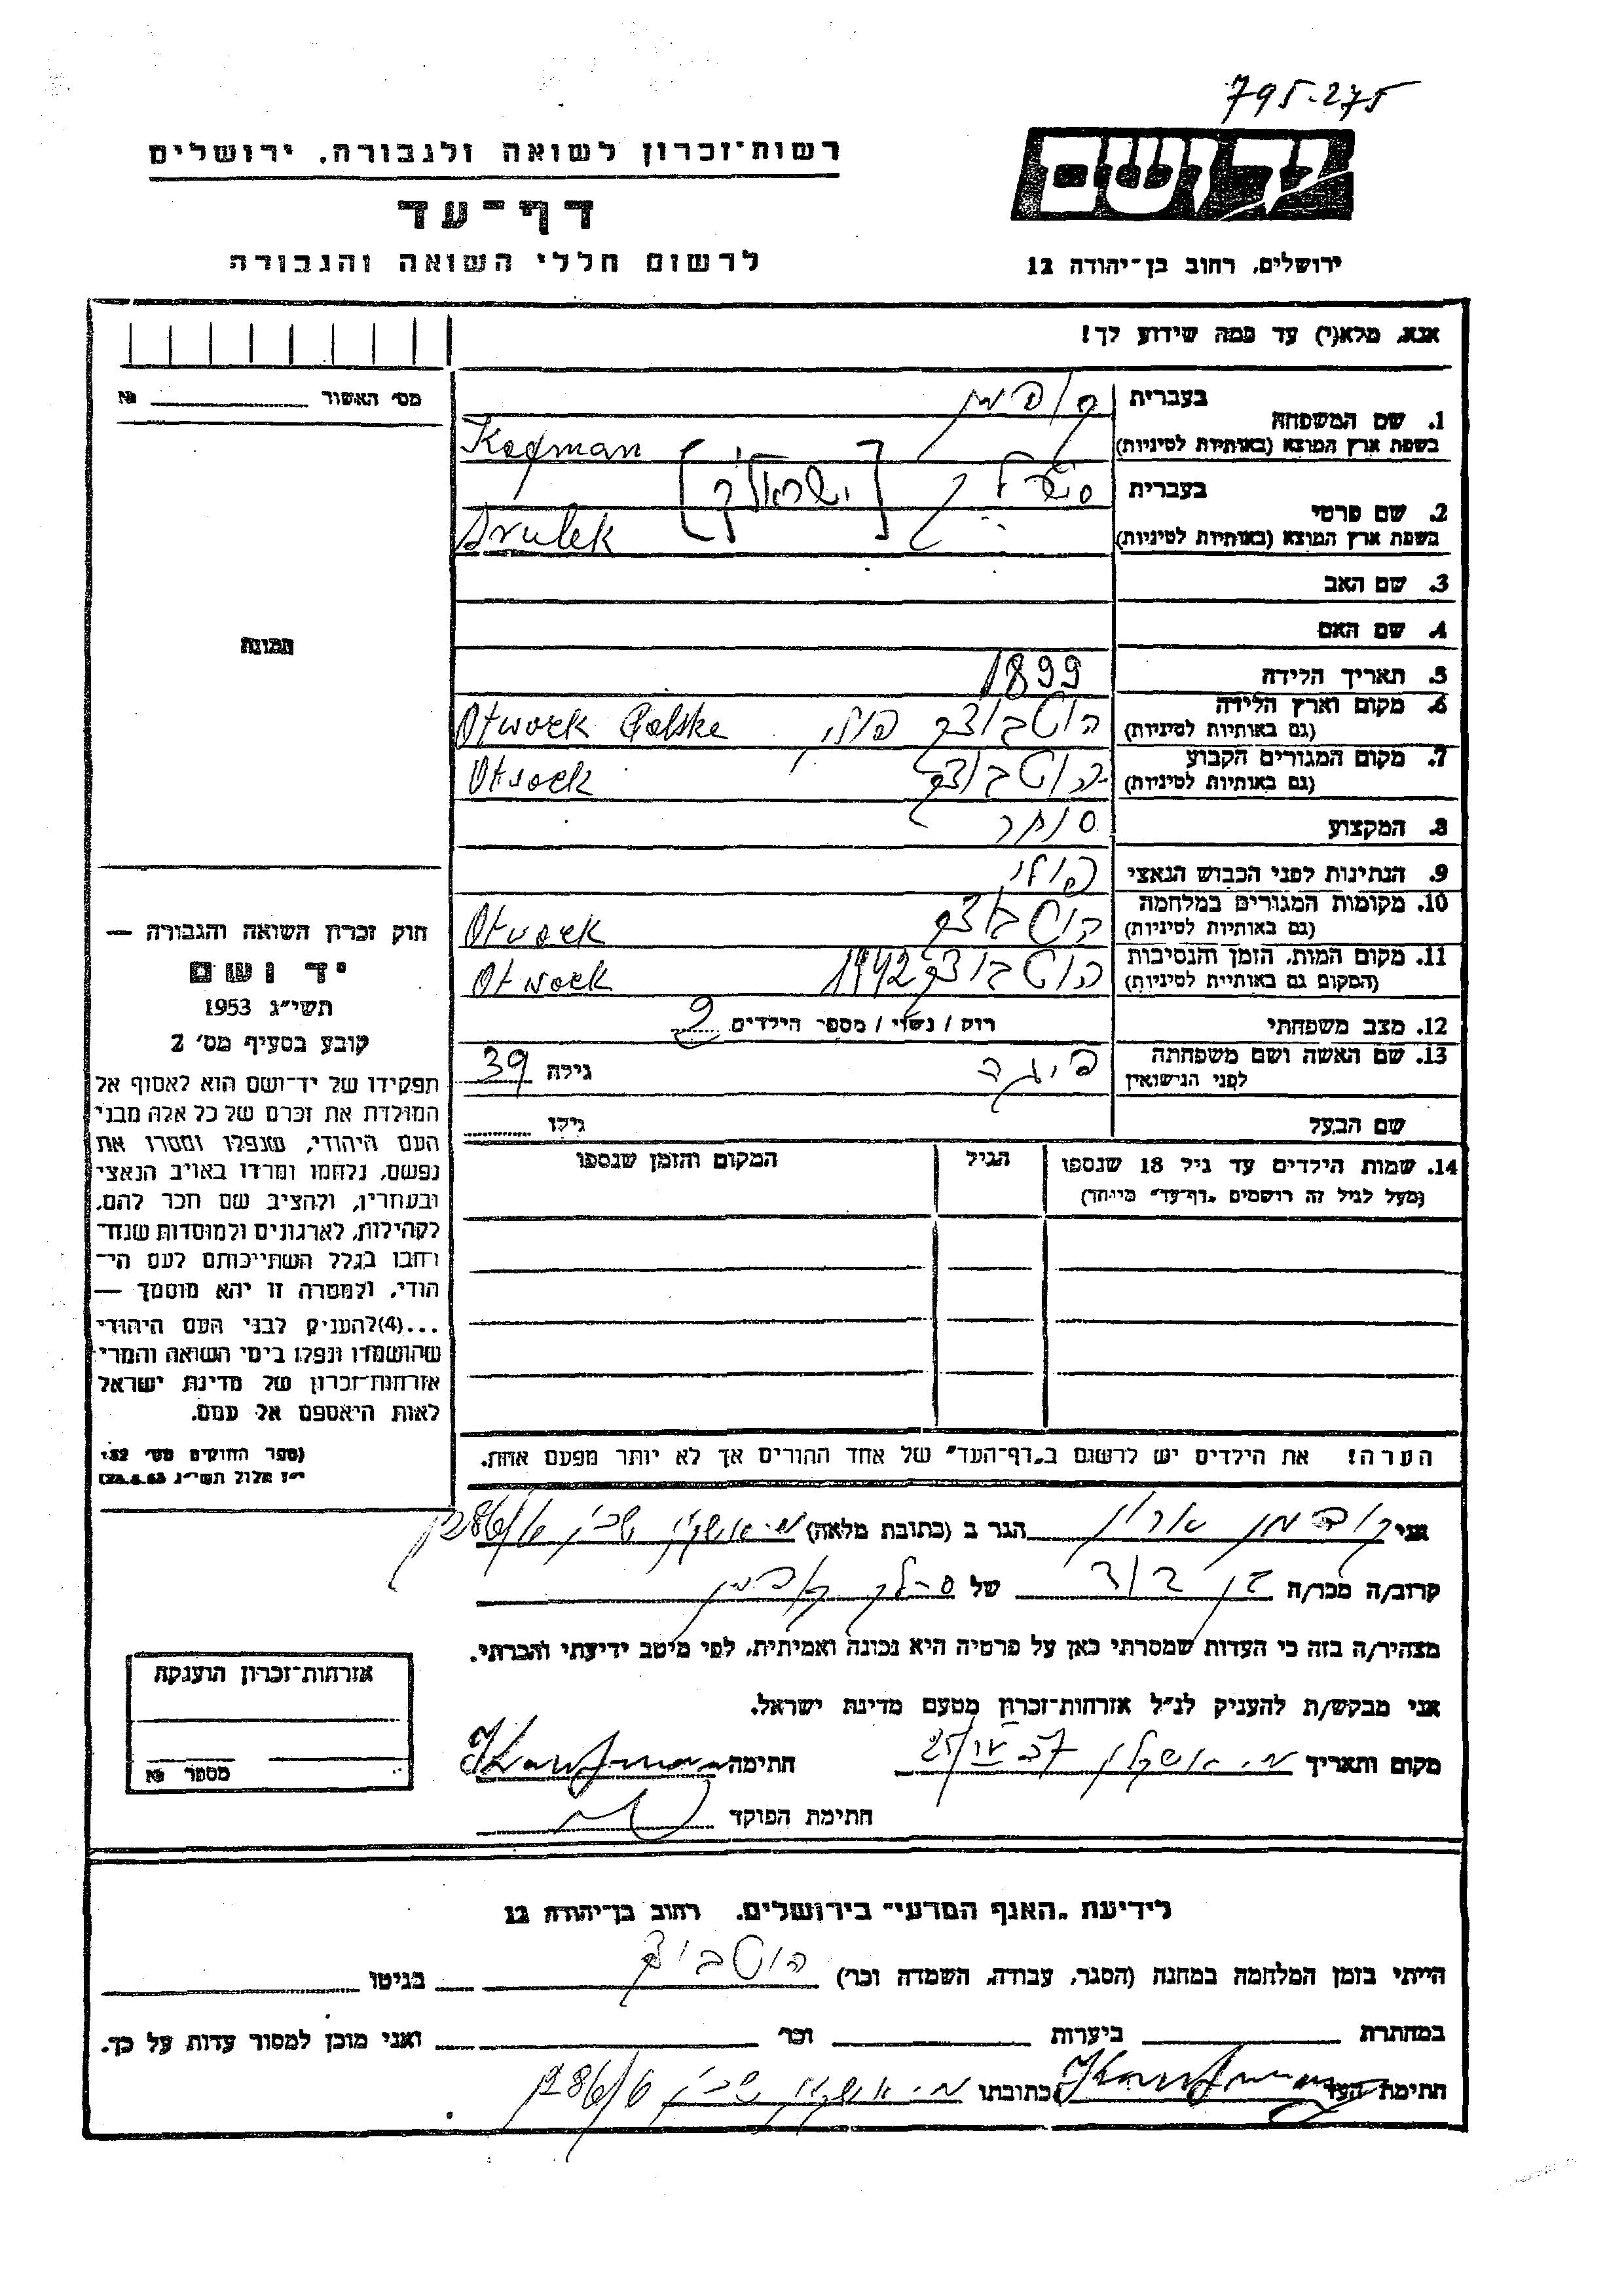 795-275
יד ושם
רשות־זכרון לשואה ולגבורה. ירושלים
דף־עד
לרשום חללי השואה והגבורה
ירושלים, רחוב בן־יהודה 12
אנא, מלא(י) עד כמה שידוע לך!
מס׳ האשור № ________
1. שם המשפחה בעברית
בשפת ארץ המוצא (באותיות לטיניות) Kofman
2. שם פרטי בעברית [ישראל]
בשפת ארץ המוצא (באותיות לטיניות) Srulek
3. שם האב
4. שם האם
תמונה
5. תאריך הלידה 1899
6. מקום וארץ הלידה
(גם באותיות לטיניות) Otwock Polska
7. מקום המגורים הקבוע
(גם באותיות לטיניות) Otwock
8. המקצוע סוחר
9. הנתינות לפני הכבוש הנאצי פולני
10. מקומות המגורים במלחמה
(גם באותיות לטיניות) Otwock
11. מקום המות, הזמן והנסיבות 1942
(המקום גם באותיות לטיניות) Otwock
12. מצב משפחתי רוק / נשוי / מספר הילדים 2
13. שם האשה ושם משפחתה
לפני הנישואין פיגה גילה 39
שם הבעל גילו
14. שמות הילדים עד גיל 18 שנספו הגיל המקום והזמן שנספו
(מעל לגיל זה רושמים „דף־עד״ מיוחד)
הערה! את הילדים יש לרשום ב„דף־העד״ של אחד ההורים אך לא יותר מפעם אחת.
חוק זכרון השואה והגבורה —
יד ושם
תשי״ג 1953
קובע בסעיף מס׳ 2
תפקידו של יד־ושם הוא לאסוף אל
המולדת את זכרם של כל אלה מבני
העם היהודי, שנפלו ומסרו את
נפשם, נלחמו ומרדו באויב הנאצי
ובעוזריו, ולהציב שם וזכר להם,
לקהילות, לארגונים ולמוסדות שנח־
רבו בגלל השתייכותם לעם הי־
הודי, ולמטרה זו יהא מוסמך —
...(4) להעניק לבני העם היהודי
שהושמדו ונפלו בימי השואה והמרי
אזרחות־זכרון של מדינת ישראל
לאות היאספם אל עמם.
(ספר החוקים מס׳ 132
י״ז אלול תשי״ג 28.8.53)
אני קופמן אהרון הגר ב (כתובת מלאה)
קרוב/ה מכר/ה בן דוד של
מצהיר/ה בזה כי העדות שמסרתי כאן על פרטיה היא נכונה ואמיתית, לפי מיטב ידיעתי והכרתי.
אני מבקש/ת להעניק לנ״ל אזרחות־זכרון מטעם מדינת ישראל.
מקום ותאריך חתימה
חתימת הפוקד
אזרחות־זכרון הוענקה
מספר №
לידיעת „האגף המדעי״ בירושלים, רחוב בן־יהודה 12
הייתי בזמן המלחמה במחנה (הסגר, עבודה, השמדה וכו׳) בגיטו
במחתרת ביערות וכו׳ ואני מוכן למסור עדות על כך.
חתימת העד כתובתו